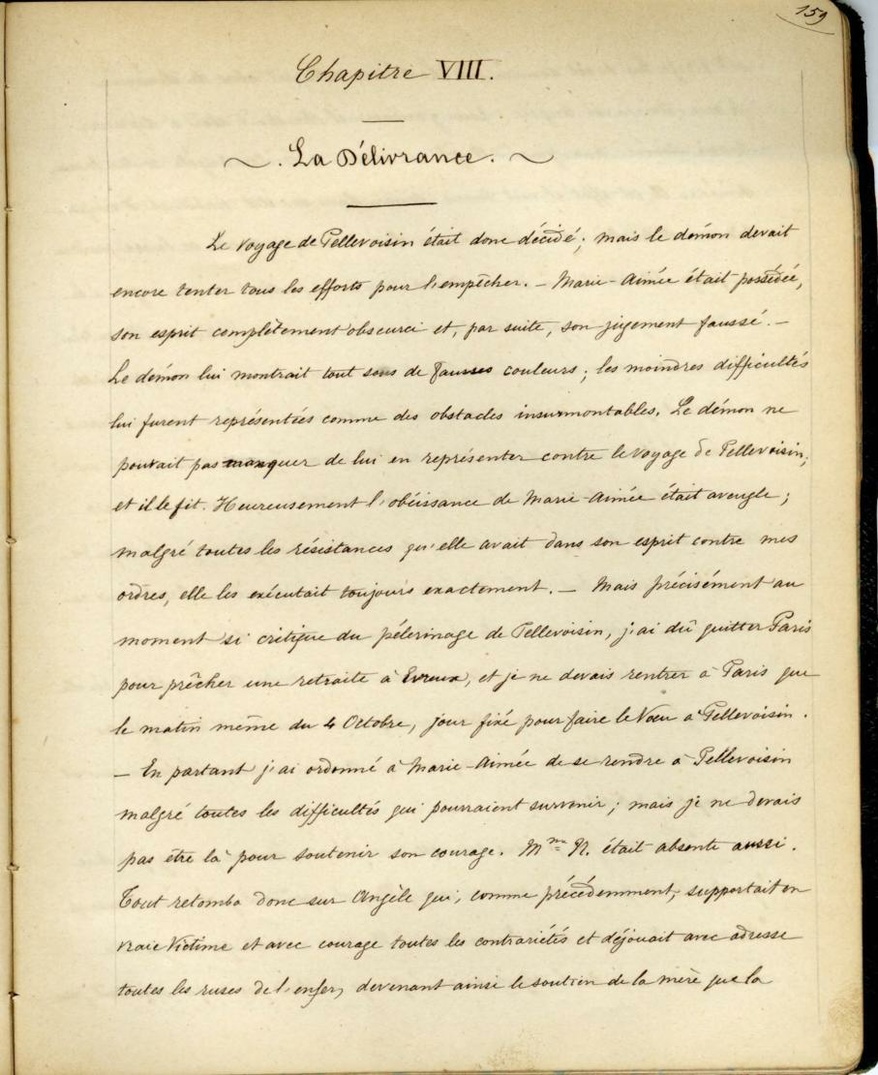 159
Chapitre VIII.
~ . La Délivrance. ~
Le voyage de Pellevoisin était donc décidé ; mais le démon devait
encore tenter tous les efforts pour l'empêcher. — Marie-Aimée était possédée,
son esprit complètement obscurci et, par suite, son jugement faussé. —
Le démon lui montrait tout sous de fausses couleurs ; les moindres difficultés
lui furent représentées comme des obstacles insurmontables. Le démon ne
pouvait pas manquer de lui en représenter contre le voyage de Pellevoisin,
et il le fit. Heureusement l'obéissance de Marie-Aimée était aveugle ;
malgré toutes les résistances qu'elle avait dans son esprit contre mes
ordres, elle les exécutait toujours exactement. — Mais précisément au
moment si critique du pélerinage de Pellevoisin, j'ai dû quitter Paris
pour prêcher une retraite à Evreux, et je ne devais rentrer à Paris que
le matin même du 4 Octobre, jour fixé pour faire le Vœu à Pellevoisin.
— En partant j'ai ordonné à Marie-Aimée de se rendre à Pellevoisin
malgré toutes les difficultés qui pourraient survenir ; mais je ne devais
pas être là pour soutenir son courage. Mme N. était absente aussi.
Tout retomba donc sur Angèle qui, comme précédemment, supportait en
vraie Victime et avec courage toutes les contrariétés et déjouait avec adresse
toutes les ruses de l'enfer, devenant ainsi le soutien de la mère que la